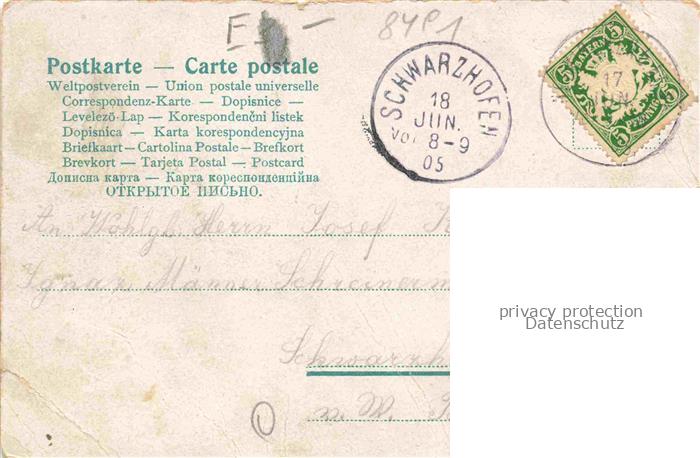 84P1
Postkarte — Carte postale
Weltpostverein — Union postale universelle
Correspondenz-Karte — Dopisnice —
Levelező-Lap — Korespondenční listek
Dopisnica — Karta korespondencyjna
Briefkaart — Cartolina Postale — Brefkort
Brevkort — Tarjeta Postal — Postcard
Дописна карта — Карта кореспонденційна
ОТКРЫТОЕ ПИСЬМО.
SCHWARZHOFEN
18
JUN.
8-9
05
BAYERN
5 5
17
JUN.
5 5
PFENNIG
An Wohlgb. Herrn Josef
Ignaz Männer Schreinerm
Schwarzh
n. W.
privacy protection
Datenschutz